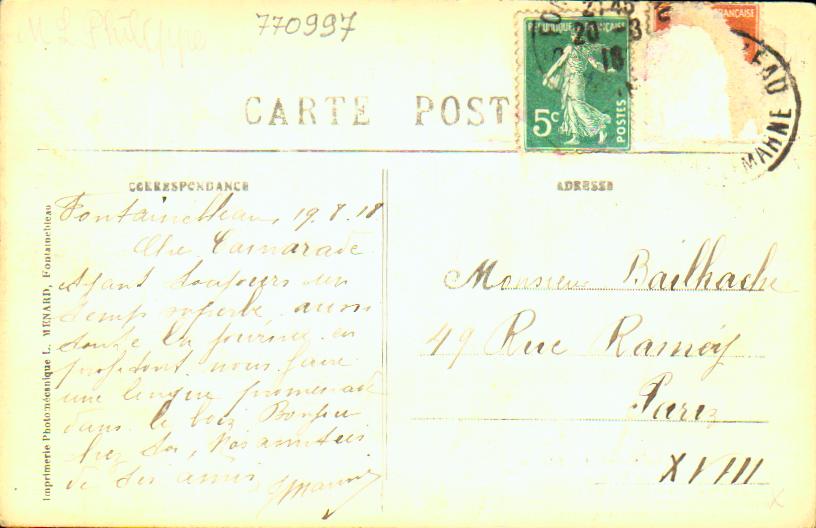 770997
M L Philippe
21 45
20 -8
18
RÉPUBLIQUE FRANÇAISE
5c
POSTES
FRANÇAISE
EAU
MARNE
CARTE POST
CORRESPONDANCE
ADRESSE
Imprimerie Photomécanique L. MENARD, Fontainebleau
Fontainebleau, 19.8.18
Cher Camarade
ayant toujours un
temps superbe, aussi
toute la journée en
profitant nous faire
une longue promenade
dans le bois Bonjour
chez toi, Nos amitiés
de tes amis
Monsieur Bailhache
49 Rue Ramey
Paris
XVIII